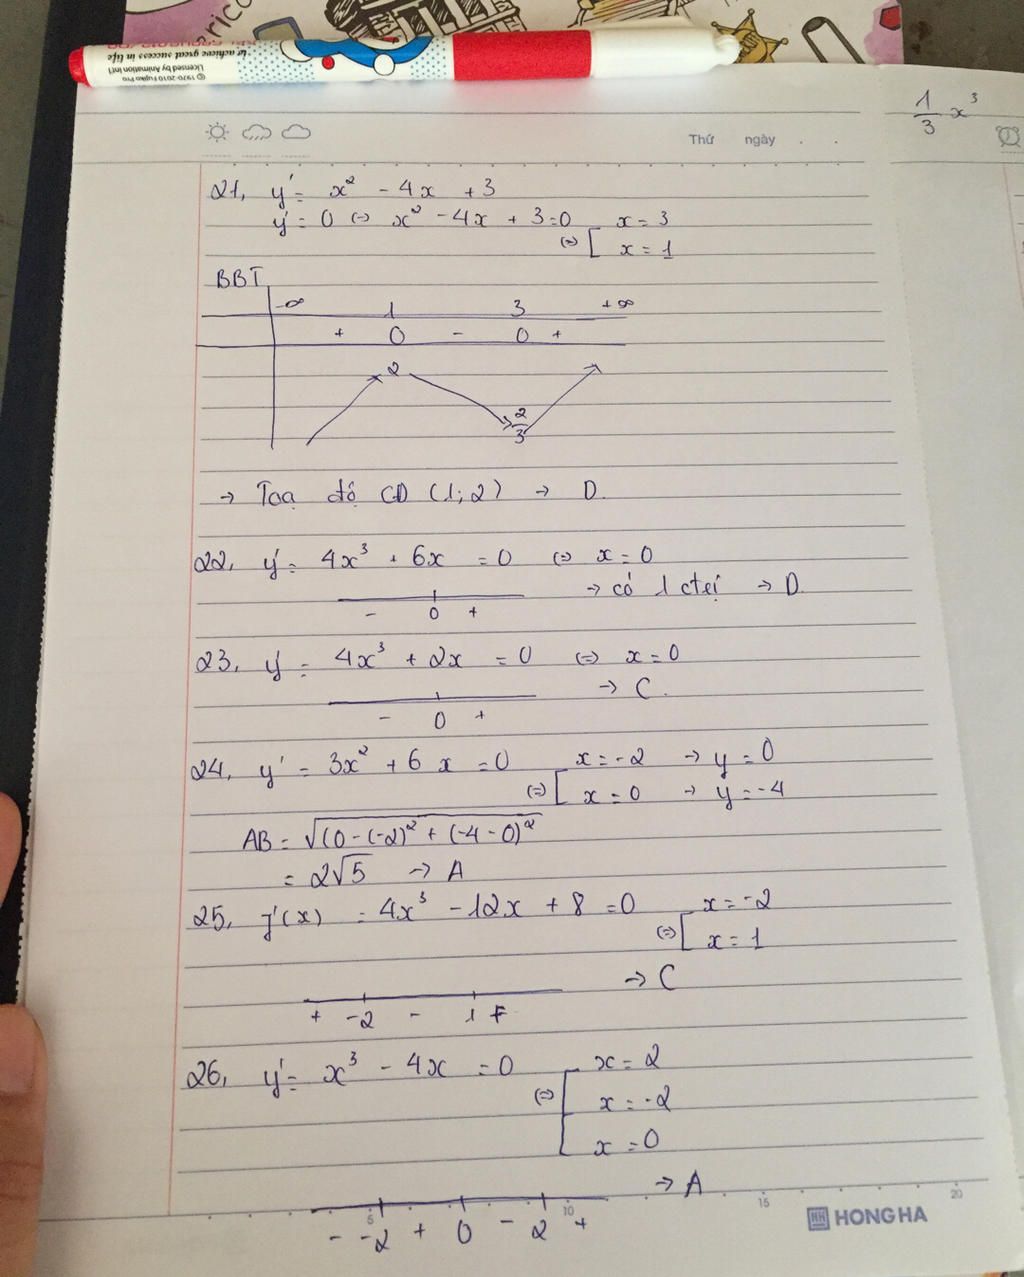 to achieve great success in life
Licensed by Animation Int'l
© 1970-2010 Fujiko Pro
1/3 x³
Thứ ngày . .
21, y' = x² - 4x + 3
y' = 0 (=) x² - 4x + 3 = 0 (=) [ x = 3
x = 1
BBT
-∞ 1 3 +∞
+ 0 - 0 +
2
2/3
→ Toạ độ CĐ (1; 2) → D.
22, y' = 4x³ + 6x = 0 (=) x = 0
→ có 1 ctrị → D.
- 0 +
23, y' = 4x³ + 2x = 0 (=) x = 0
→ C.
- 0 +
24, y' = 3x² + 6x = 0 (=) [ x = -2 → y = 0
x = 0 → y = -4
AB = √(0 - (-2)² + (-4 - 0)²
= 2√5 → A
25, f'(x) = 4x³ - 12x + 8 = 0 (=) [ x = -2
x = 1
→ C
+ -2 - 1 +
26, y' = x³ - 4x = 0 (=) [ x = 2
x = -2
x = 0
→ A
5 10 15 20
- -2 + 0 - 2 +
HH HONG HA